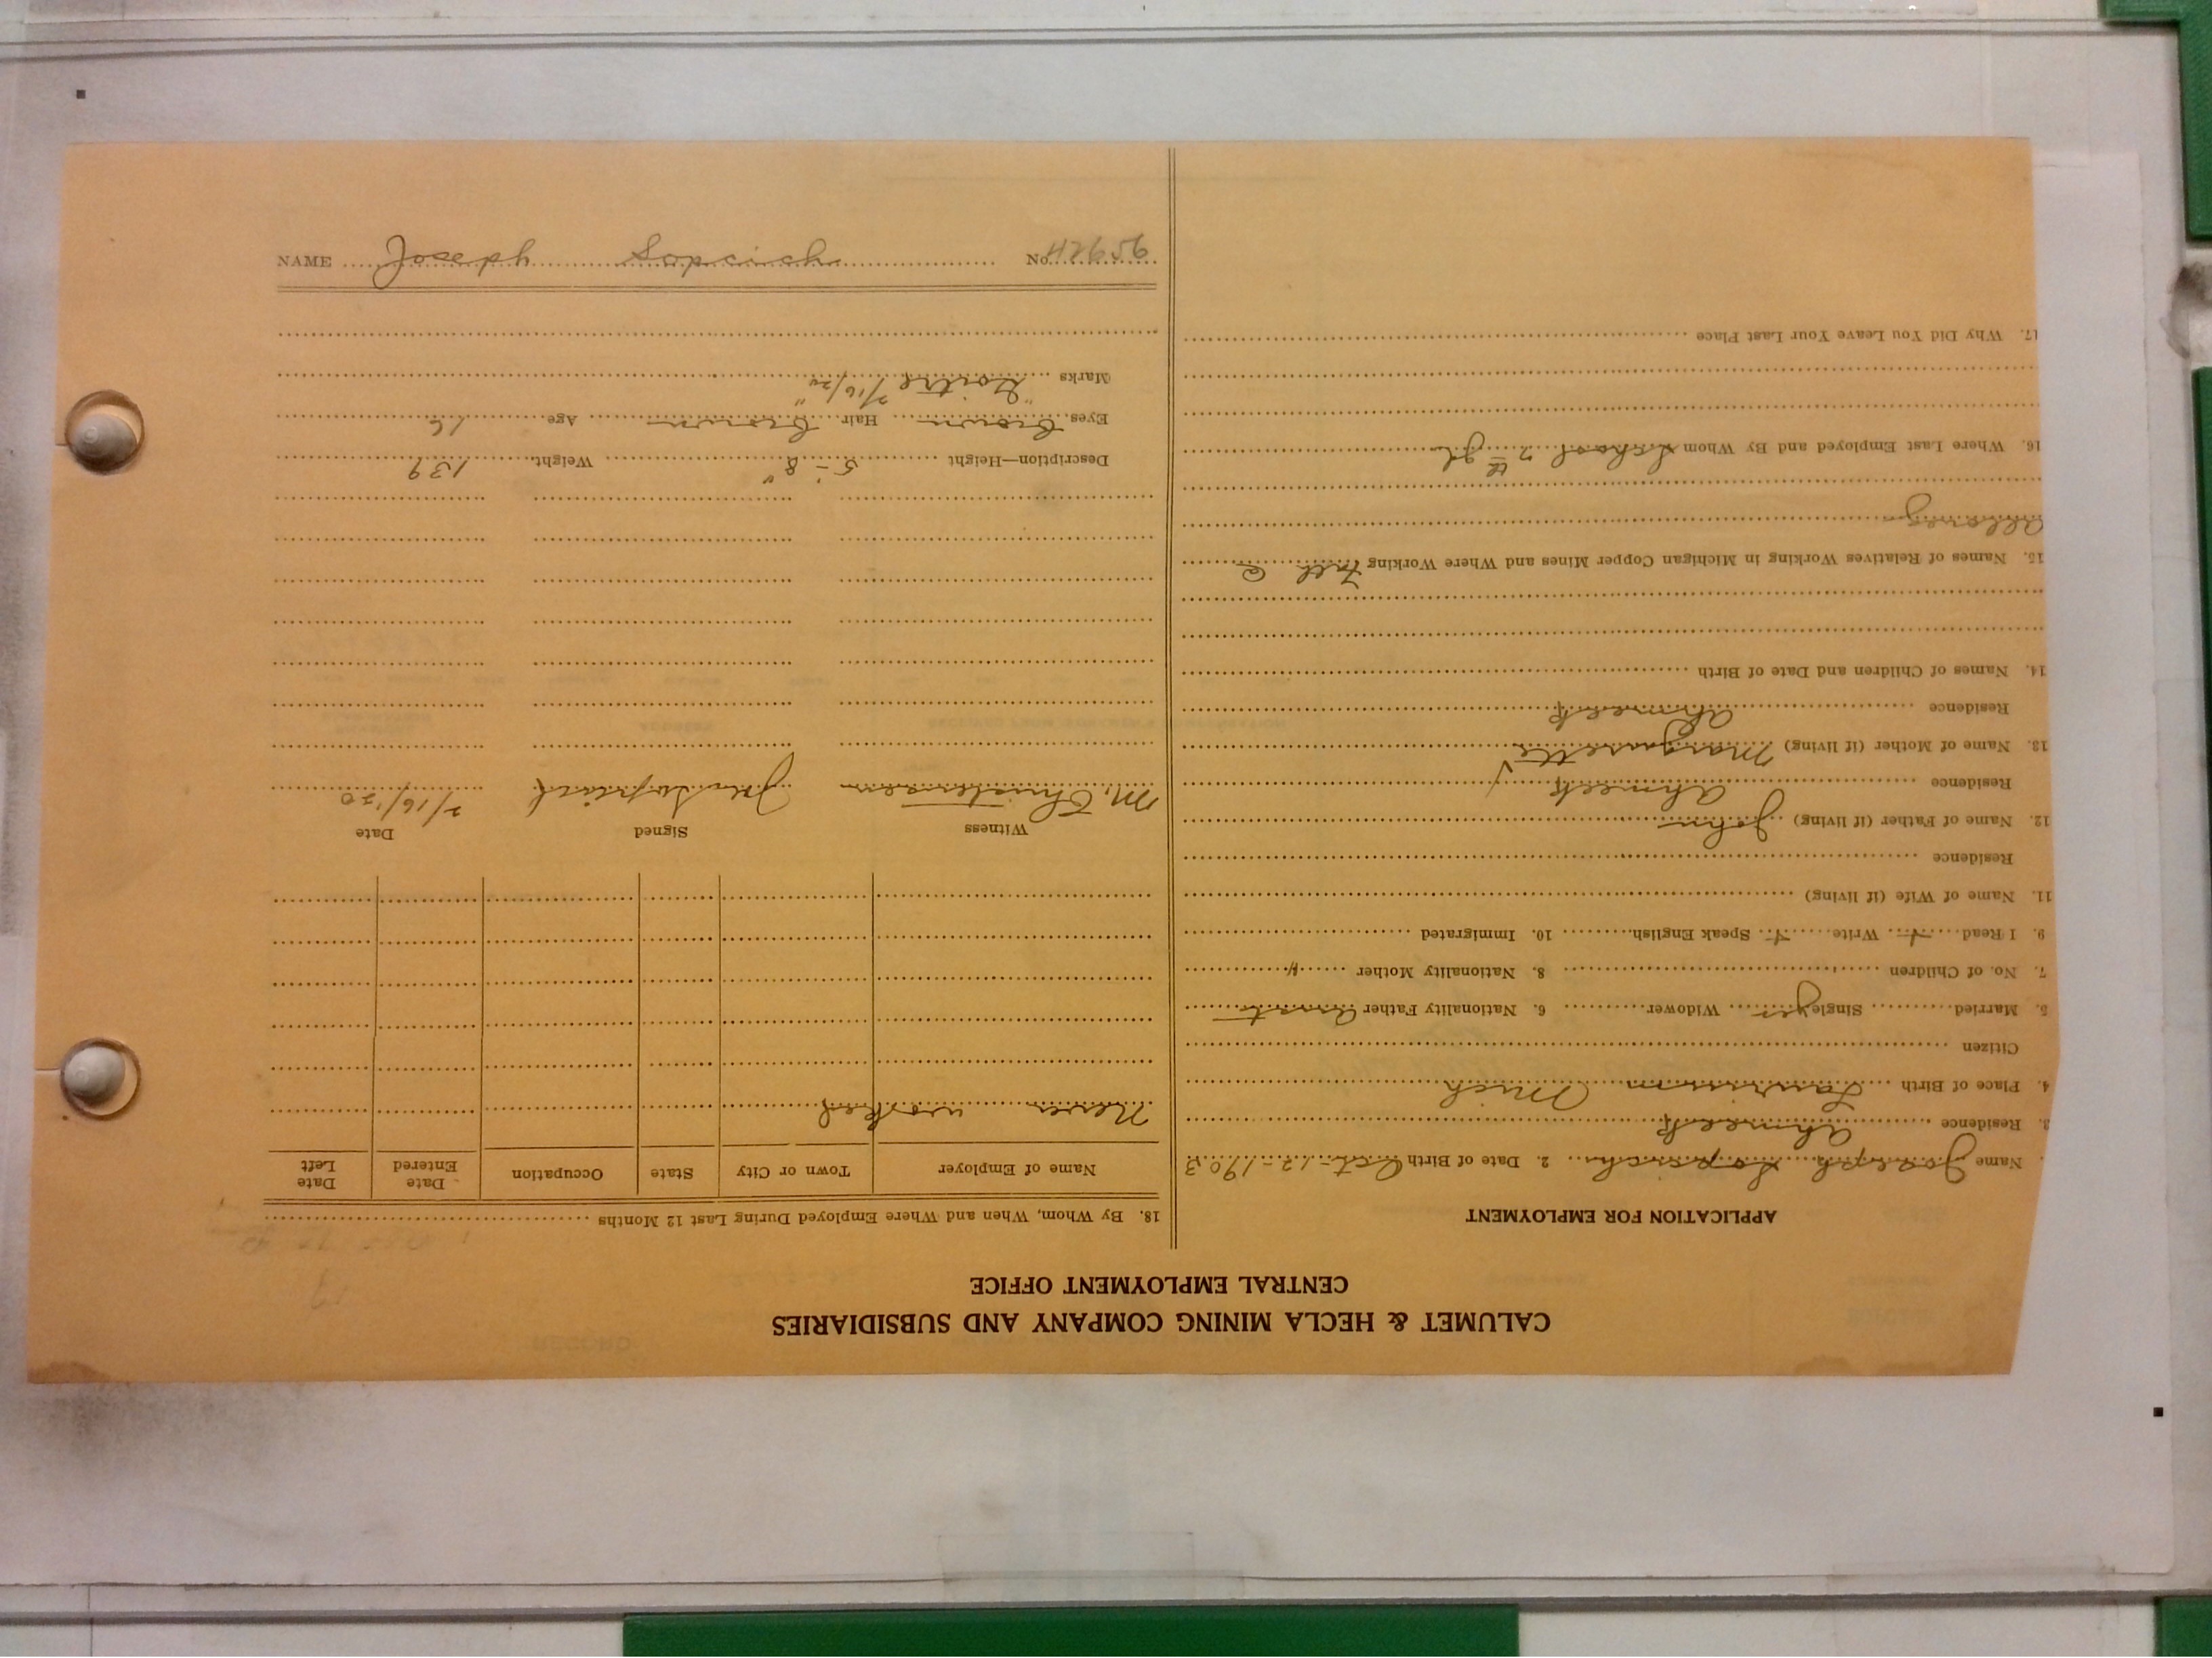 CALUMET & HECLA MINING COMPANY AND SUBSIDIARIES
CENTRAL EMPLOYMENT OFFICE
APPLICATION FOR EMPLOYMENT
Name Joseph Sopcich 2. Date of Birth Oct-12-1903
3. Residence Ahmeek
4. Place of Birth Laurium Mich
Citizen
5. Married Single yes Widower 6. Nationality Father Aust
7. No. of Children 8. Nationality Mother "
9. I Read Write Speak English 10. Immigrated
11. Name of Wife (if living)
Residence
12. Name of Father (if living) John
Residence Ahmeek
13. Name of Mother (if living) Marguerette
Residence Ahmeek
14. Names of Children and Date of Birth
15. Names of Relatives Working in Michigan Copper Mines and Where Working Fath @
Allouez
16. Where Last Employed and By Whom School 7th gd
17. Why Did You Leave Your Last Place
18. By Whom, When and Where Employed During Last 12 Months
Name of Employer Town or City State Occupation Date Entered Date Left
Never worked
Witness Signed Date
M. Christensen 7/16/20
Description—Height 5'-8" Weight 139
Eyes Brown Hair Brown Age 16
Marks "Goitre 7/16/20"
NAME Joseph Sopcich No. 42656